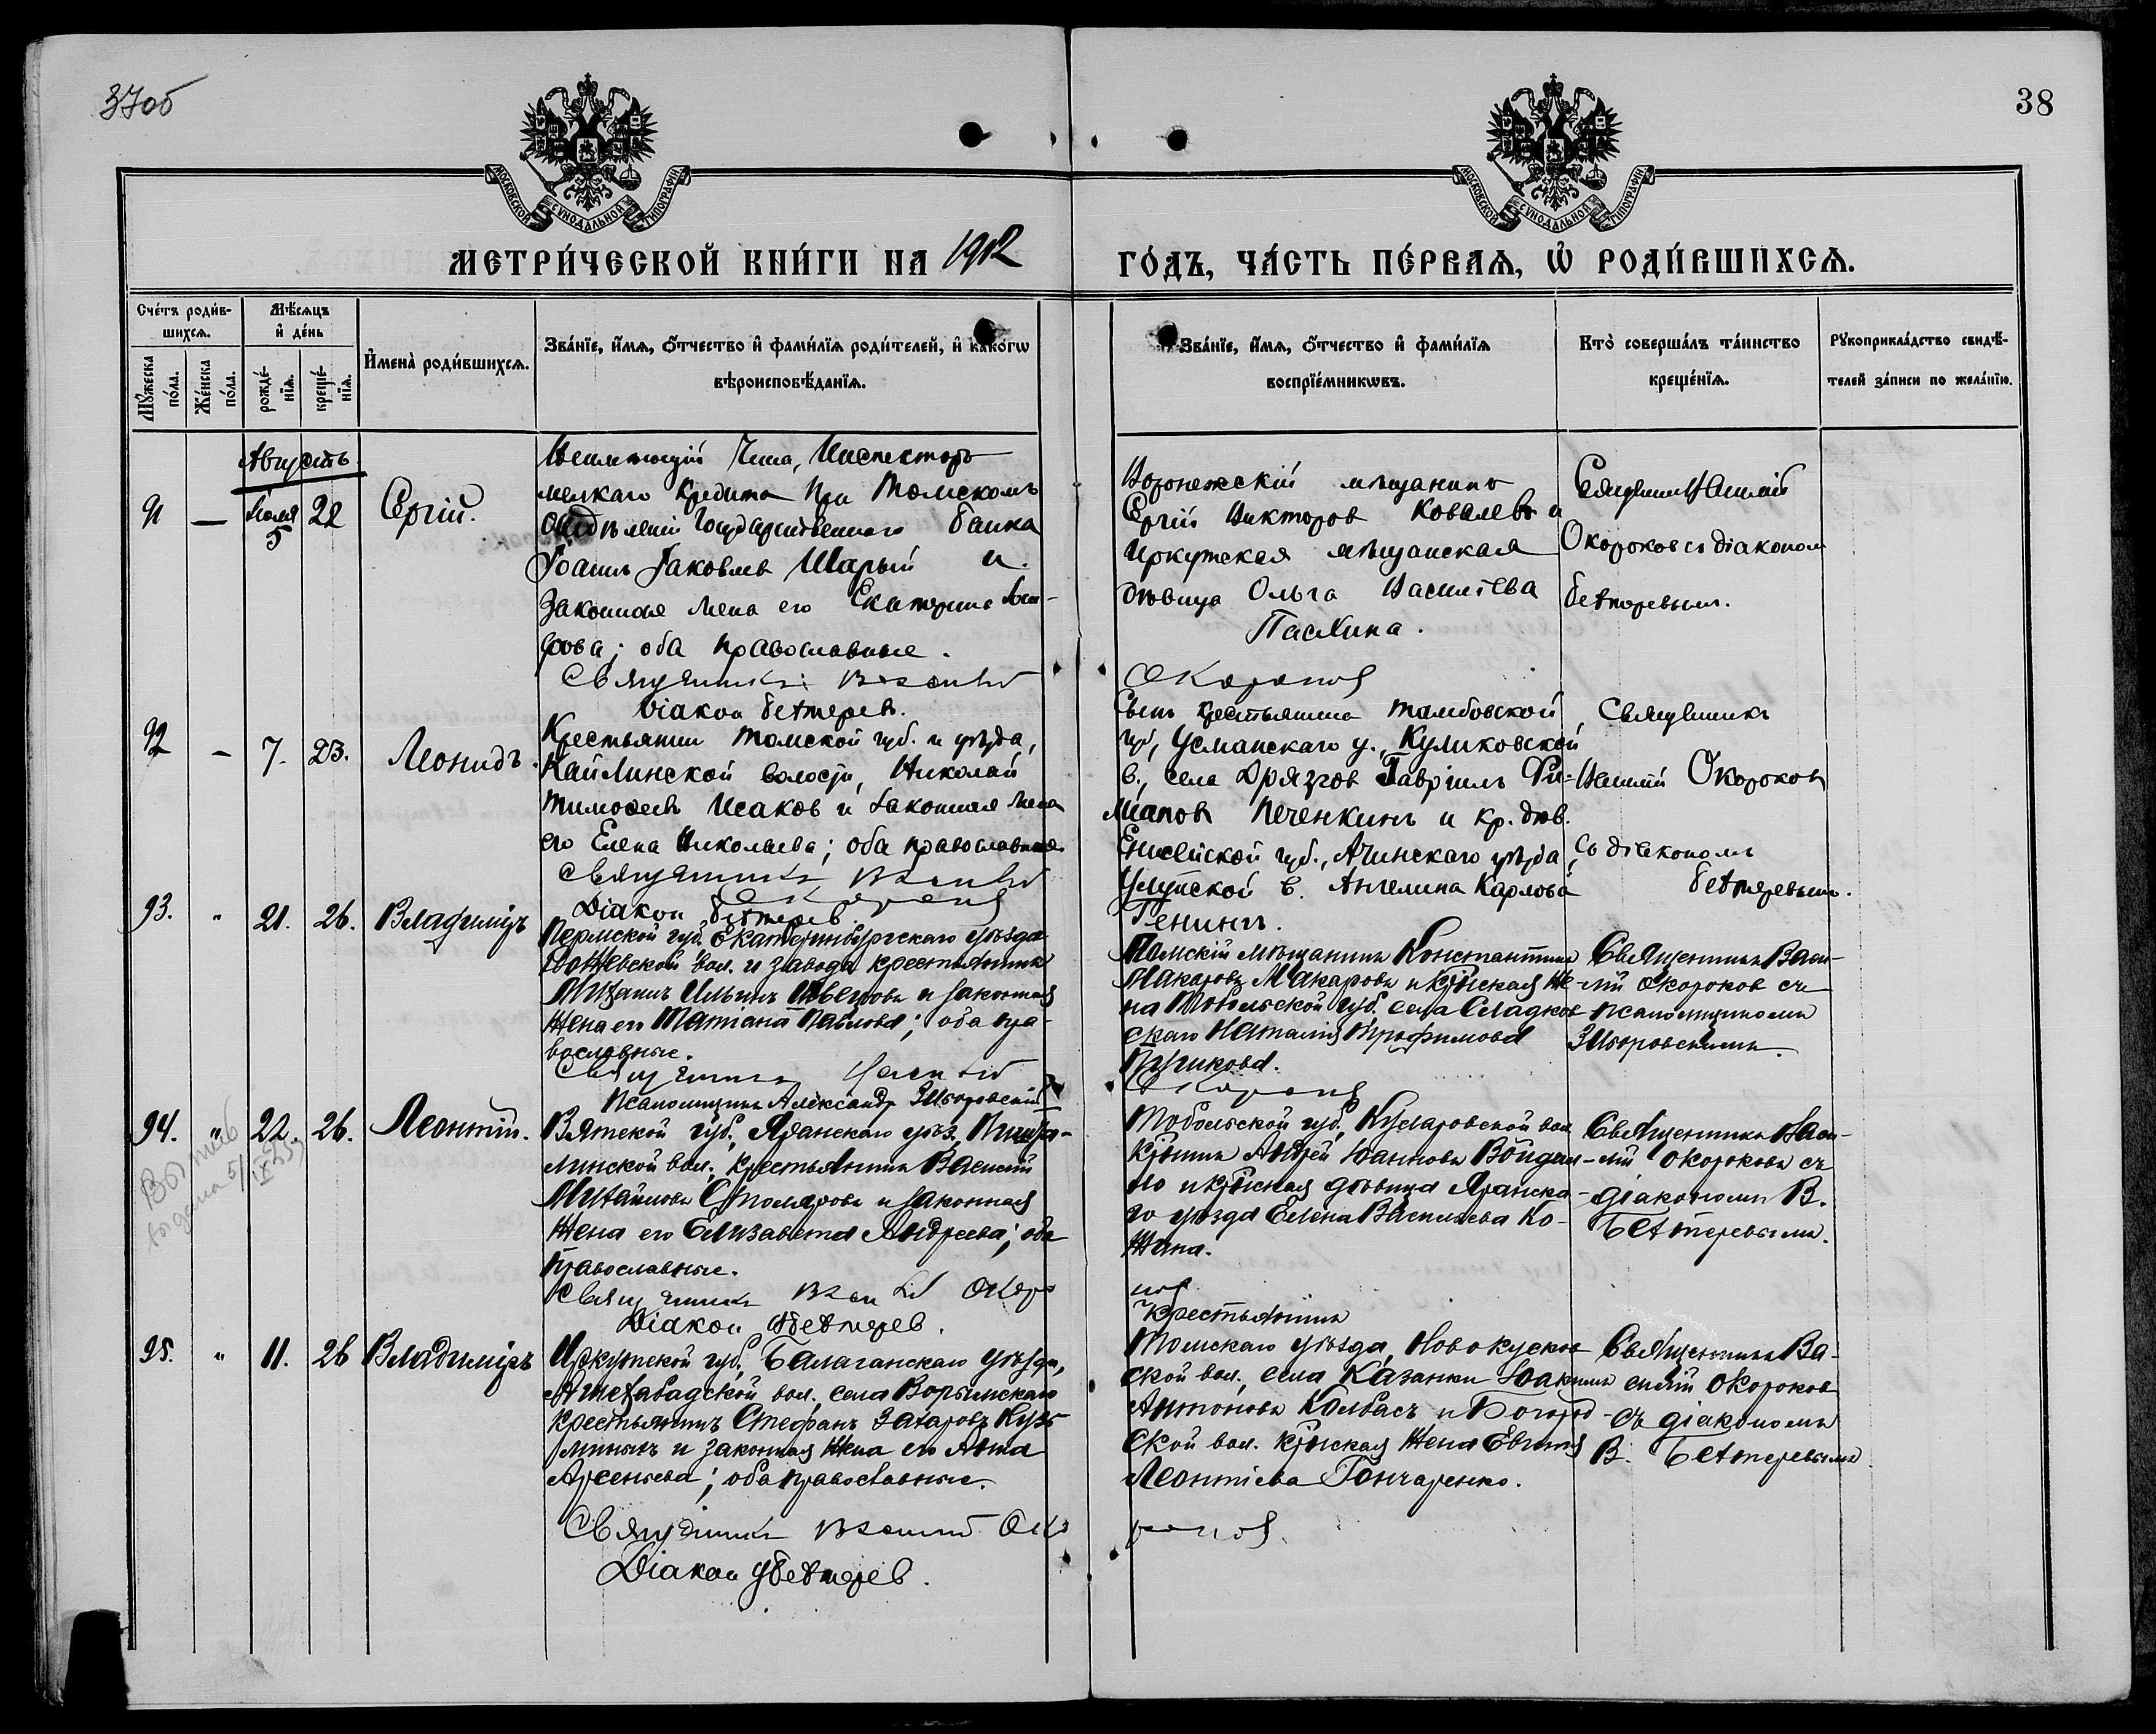 37об
38
МОСКОВСКОЙ СѴНОДАЛЬНОЙ ТИПОГРАФІИ
МОСКОВСКОЙ СѴНОДАЛЬНОЙ ТИПОГРАФІИ
МЕТРИ́ЧЕСКОЙ КНИ́ГИ НА 1912 ГО́ДЪ, ЧА́СТЬ ПЕ́РВАѦ, Ѡ РОДИ́ВШИХСѦ.
Сче́тъ роди́в-
шихсѧ.
Мꙋ́жеска по́ла.
Же́нска по́ла.
Мѣ́сѧцъ
и҆ де́нь
рожде́-
нїѧ.
креще́-
нїѧ.
И҆мена̀ роди́вшихсѧ.
Зва́нїе, и҆́мѧ, ѻ҆́тчество и҆ фами́лїѧ роди́телей, и҆ како́гѡ
вѣроисповѣ́данїѧ.
Зва́нїе, и҆́мѧ, ѻ҆́тчество и҆ фами́лїѧ
воспрїе́мникѡвъ.
Кто̀ соверша́лъ та́инство
креще́нїѧ.
Рꙋкоприкла́дство свидѣ́-
телей за́писи по жела́нїю.
Августъ
91 — Іюля 5 22 Сергій.
Неимеющій Чина, Инспекторъ
мелкаго Кредита При Томскомъ
Отдѣленіи Государственнаго банка
Іоаннъ Іаковлевъ Шарый и
Законная жена его Екатерина
рова; оба православные.
Священникъ Василій
Діакон Бехтерев.
Воронежскій мѣщанинъ
Сергій Викторов Ковалевъ и
Иркутская мѣщанская
дѣвица Ольга Василіева
Пасхина.
Окороков
Священ. Василій
Окороков съ діаконом
Бехтеревым.
92 — 7. 23. Леонидъ.
Крестьянин Томской губ. и уѣзда,
Кайлинской волости, Николай
Тимофеевъ Исаков и Законная жена
его Елена Николаева; оба православные
Священникъ Василій
Окороков
Діакон Бехтерев.
Сынъ Крестьянина Тамбовской
губ, Усманскаго у., Куликовской
в., села Дрязгов Гавріилъ Фи-
Печенкинъ и кр. дѣв.
Енисейской губ., Ачинскаго уѣзда,
Улуйской в. Ангелина Карлова
Генингъ.
Священникъ
Василій Окороков
Съ діакономъ
Бехтеревым.
93. " 21. 26. Владиміръ
Пермской губ. Екатеринбургскаго уѣзда
вол. и завода крестьянинъ
Михаилъ Ильинъ и законная
жена его Татіана Павлова; оба пра-
вославные.
Священникъ Василій
Псаломщикъ Александръ
Томскій мѣщанинъ Константинъ
Макаровъ Макаровъ и кр̃нская же-
на Тобольской губ. села Сладков-
скаго Наталія Трофимова
Окороков
Священникъ Васи-
лій Окороков съ
псаломщикомъ
94. " 22. 26. Леонтій.
Вятской губ., Яранскаго уѣз.,
линской вол., крестьянинъ Василій
Михайловъ Столяровъ и законная
жена его Елизавета Андреева; оба
православные.
Священникъ Василій Окоро
Діакон Бехтерев.
Тобольской губ., Кугларовской вол.
кр̃нинъ Андрей Іоанновъ
ло и кр̃нская дѣвица Яранска-
го уѣзда Елена Васильева Ко-
жина.
ков
Священникъ Васи-
лій Окороковъ съ
діакономъ В.
Бехтеревымъ.
выдана 5/IX
95. " 11. 26 Владиміръ
Иркутской губ., Балаганскаго уѣзда,
вол., села Ворымскаго
крестьянинъ Стефанъ Захаровъ Кузь-
миныхъ и законная жена его Анна
Арсеньева; оба православные.
Священникъ Василій Око
Діакон Бехтерев.
Крестьянинъ
Томскаго уѣзда, Новокусков-
ской вол., села Казанки Іоакимъ
Антоновъ Колбасъ и Богород-
ской вол. кр̃нская жена Евгенія
Леонтіева Гончаренко.
роков.
Священникъ Ва-
силій Окороков
съ діакономъ
В. Бехтеревымъ